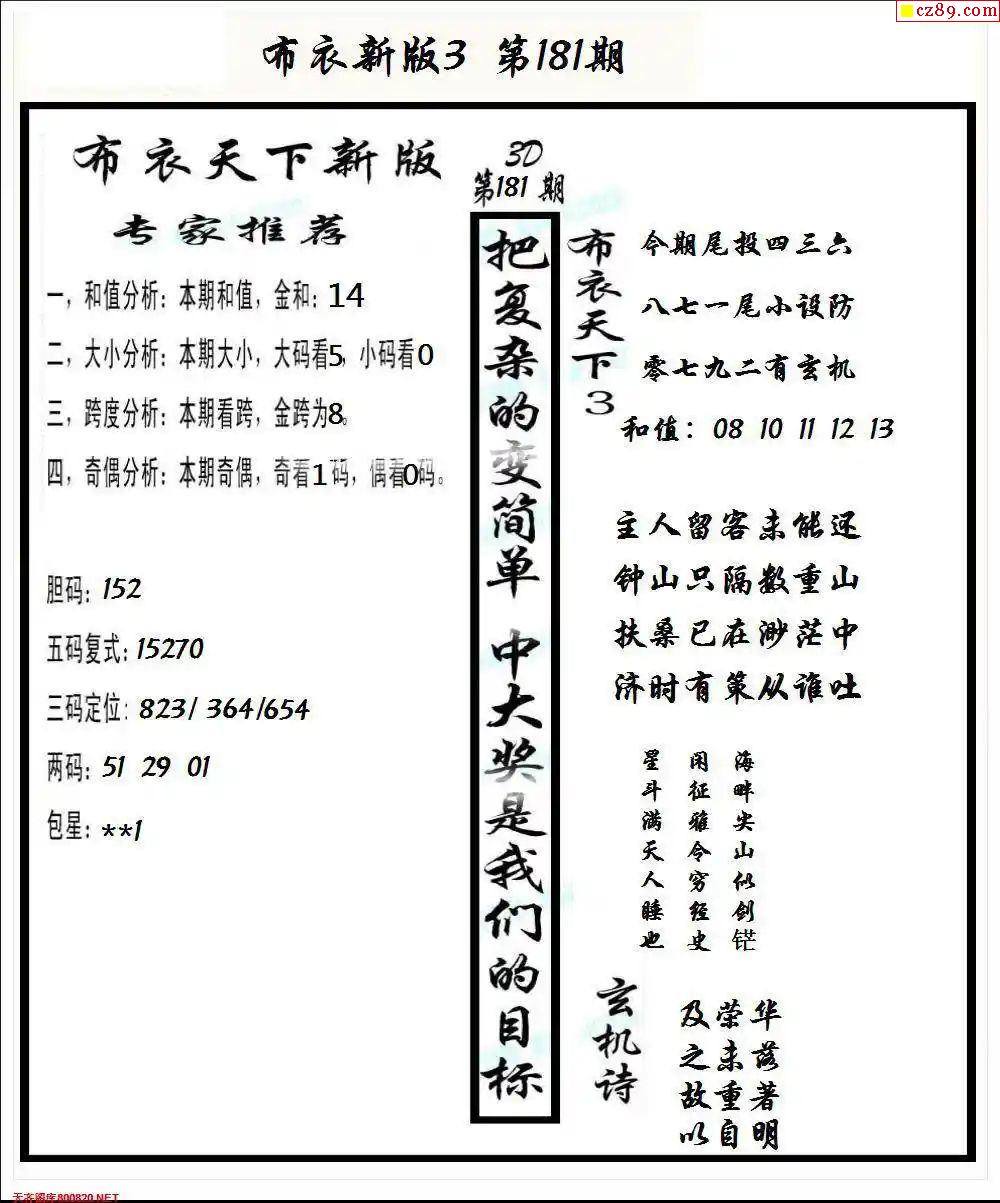 cz89.com
布衣新版3 第181期
布衣天下新版
专家推荐
一，和值分析：本期和值，金和：14
二，大小分析：本期大小，大码看5，小码看0
三，跨度分析：本期看跨，金跨为8。
四，奇偶分析：本期奇偶，奇看1码，偶看0码。
胆码：152
五码复式：15270
三码定位：823/ 364/654
两码：51 29 01
包星：**1
3D
第181 期
把复杂的变简单 中大奖是我们的目标
布衣天下3
今期尾投四三六
八七一尾小设防
零七九二有玄机
和值：08 10 11 12 13
主人留客未能还
钟山只隔数重山
扶桑已在渺茫中
济时有策从谁吐
海畔尖山似剑铓
闲征雅令穷经史
星斗满天人睡也
玄机诗
及荣华
之未落
故重著
以自明
800820.NET